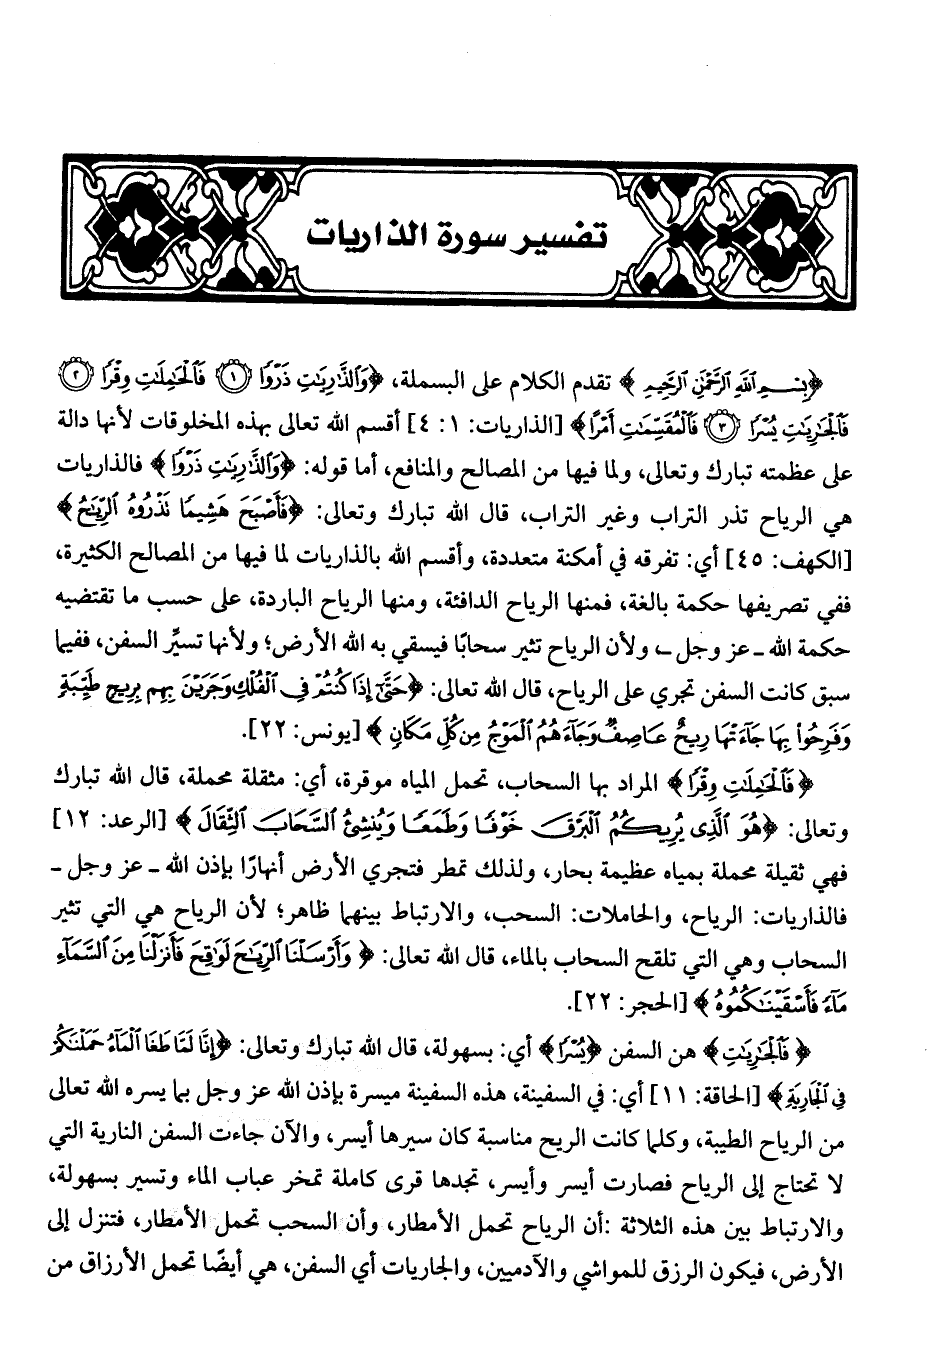 تفسير سورة الذاريات
﴿بِسْمِ اللَّهِ الرَّحْمَٰنِ الرَّحِيمِ﴾ تقدم الكلام على البسملة، ﴿وَالذَّارِيَاتِ ذَرْوًا ۝١ فَالْحَامِلَاتِ وِقْرًا ۝٢
فَالْجَارِيَاتِ يُسْرًا ۝٣ فَالْمُقَسِّمَاتِ أَمْرًا﴾ [الذاريات: ١: ٤] أقسم الله تعالى بهذه المخلوقات لأنها دالة
على عظمته تبارك وتعالى، ولما فيها من المصالح والمنافع، أما قوله: ﴿وَالذَّارِيَاتِ ذَرْوًا﴾ فالذاريات
هي الرياح تذر التراب وغير التراب، قال الله تبارك وتعالى: ﴿فَأَصْبَحَ هَشِيمًا تَذْرُوهُ الرِّيَاحُ﴾
[الكهف: ٤٥] أي: تفرقه في أمكنة متعددة، وأقسم الله بالذاريات لما فيها من المصالح الكثيرة،
ففي تصريفها حكمة بالغة، فمنها الرياح الدافئة، ومنها الرياح الباردة، على حسب ما تقتضيه
حكمة الله ـ عز وجل ـ، ولأن الرياح تثير سحابًا فيسقي به الله الأرض؛ ولأنها تسيِّر السفن، ففيما
سبق كانت السفن تجري على الرياح، قال الله تعالى: ﴿حَتَّىٰ إِذَا كُنْتُمْ فِي الْفُلْكِ وَجَرَيْنَ بِهِم بِرِيحٍ طَيِّبَةٍ
وَفَرِحُوا بِهَا جَاءَتْهَا رِيحٌ عَاصِفٌ وَجَاءَهُمُ الْمَوْجُ مِن كُلِّ مَكَانٍ﴾ [يونس: ٢٢].
﴿فَالْحَامِلَاتِ وِقْرًا﴾ المراد بها السحاب، تحمل المياه موقرة، أي: مثقلة محملة، قال الله تبارك
وتعالى: ﴿هُوَ الَّذِي يُرِيكُمُ الْبَرْقَ خَوْفًا وَطَمَعًا وَيُنشِئُ السَّحَابَ الثِّقَالَ﴾ [الرعد: ١٢]
فهي ثقيلة محملة بمياه عظيمة بحار، ولذلك تمطر فتجري الأرض أنهارًا بإذن الله ـ عز وجل ـ
فالذاريات: الرياح، والحاملات: السحب، والارتباط بينهما ظاهر؛ لأن الرياح هي التي تثير
السحاب وهي التي تلقح السحاب بالماء، قال الله تعالى: ﴿وَأَرْسَلْنَا الرِّيَاحَ لَوَاقِحَ فَأَنزَلْنَا مِنَ السَّمَاءِ
مَاءً فَأَسْقَيْنَاكُمُوهُ﴾ [الحجر: ٢٢].
﴿فَالْجَارِيَاتِ﴾ هن السفن ﴿يُسْرًا﴾ أي: بسهولة، قال الله تبارك وتعالى: ﴿إِنَّا لَمَّا طَغَا الْمَاءُ حَمَلْنَاكُمْ
فِي الْجَارِيَةِ﴾ [الحاقة: ١١] أي: في السفينة، هذه السفينة ميسرة بإذن الله عز وجل بما يسره الله تعالى
من الرياح الطيبة، وكلما كانت الريح مناسبة كان سيرها أيسر، والآن جاءت السفن النارية التي
لا تحتاج إلى الرياح فصارت أيسر وأيسر، تجدها قرى كاملة تمخر عباب الماء وتسير بسهولة،
والارتباط بين هذه الثلاثة :أن الرياح تحمل الأمطار، وأن السحب تحمل الأمطار، فتنزل إلى
الأرض، فيكون الرزق للمواشي والآدميين، والجاريات أي السفن، هي أيضًا تحمل الأرزاق من